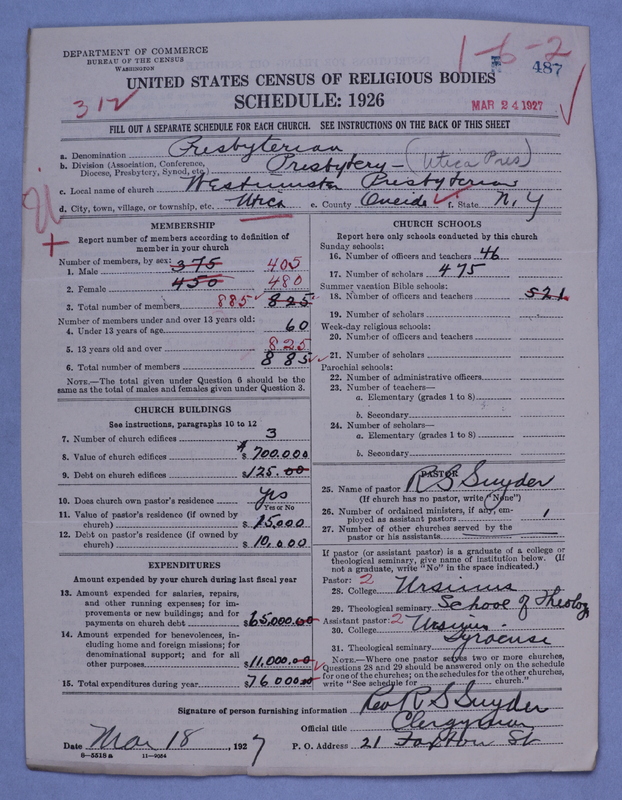 DEPARTMENT OF COMMERCE
BUREAU OF THE CENSUS
WASHINGTON
1-6-2
487
UNITED STATES CENSUS OF RELIGIOUS BODIES
SCHEDULE: 1926
312
MAR 24 1927
FILL OUT A SEPARATE SCHEDULE FOR EACH CHURCH. SEE INSTRUCTIONS ON THE BACK OF THIS SHEET
a. Denomination Presbyterian
b. Division (Association, Conference, Diocese, Presbytery, Synod, etc.) Presbytery - (Utica Pres)
c. Local name of church Westminster Presbyterian
d. City, town, village, or township, etc. Utica e. County Oneida f. State N. Y
MEMBERSHIP
Report number of members according to definition of
member in your church
Number of members, by sex:
1. Male 375 405
2. Female 450 480
3. Total number of members 885 825
Number of members under and over 13 years old:
4. Under 13 years of age 60
5. 13 years old and over 825
6. Total number of members 885
NOTE.—The total given under Question 6 should be the
same as the total of males and females given under Question 3.
CHURCH BUILDINGS
See instructions, paragraphs 10 to 12
7. Number of church edifices 3
8. Value of church edifices $ 700.000
9. Debt on church edifices $ 125.00
10. Does church own pastor's residence yes
Yes or No
11. Value of pastor's residence (if owned by
church) $ 15,000
12. Debt on pastor's residence (if owned by
church) $ 10,000
EXPENDITURES
Amount expended by your church during last fiscal year
13. Amount expended for salaries, repairs,
and other running expenses; for im-
provements or new buildings; and for
payments on church debt $ 65,000.00
14. Amount expended for benevolences, in-
cluding home and foreign missions; for
denominational support; and for all
other purposes $ 11,000.00
15. Total expenditures during year $ 76000
CHURCH SCHOOLS
Report here only schools conducted by this church
Sunday schools:
16. Number of officers and teachers 46
17. Number of scholars 475
Summer vacation Bible schools:
18. Number of officers and teachers 521
19. Number of scholars
Week-day religious schools:
20. Number of officers and teachers
21. Number of scholars
Parochial schools:
22. Number of administrative officers
23. Number of teachers—
a. Elementary (grades 1 to 8)
b. Secondary
24. Number of scholars—
a. Elementary (grades 1 to 8)
b. Secondary
PASTOR
25. Name of pastor R S Snyder
(If church has no pastor, write "None")
26. Number of ordained ministers, if any, em-
ployed as assistant pastors 1
27. Number of other churches served by the
pastor or his assistants.
If pastor (or assistant pastor) is a graduate of a college or
theological seminary, give name of institution below. (If
not a graduate, write "No" in the space indicated.)
Pastor: 2
28. College Ursinus
29. Theological seminary School of Theology
Assistant pastor: 2
30. College Ursinus
Syracuse
31. Theological seminary
NOTE.—Where one pastor serves two or more churches,
Questions 28 and 29 should be answered only on the schedule
for one of the churches; on the schedules for the other churches,
write "See schedule for church."
Signature of person furnishing information Rev R S Snyder
Official title Clergyman
Date Mar 18, 1927 P. O. Address 21 Faxton St
9-5518a 11-9064